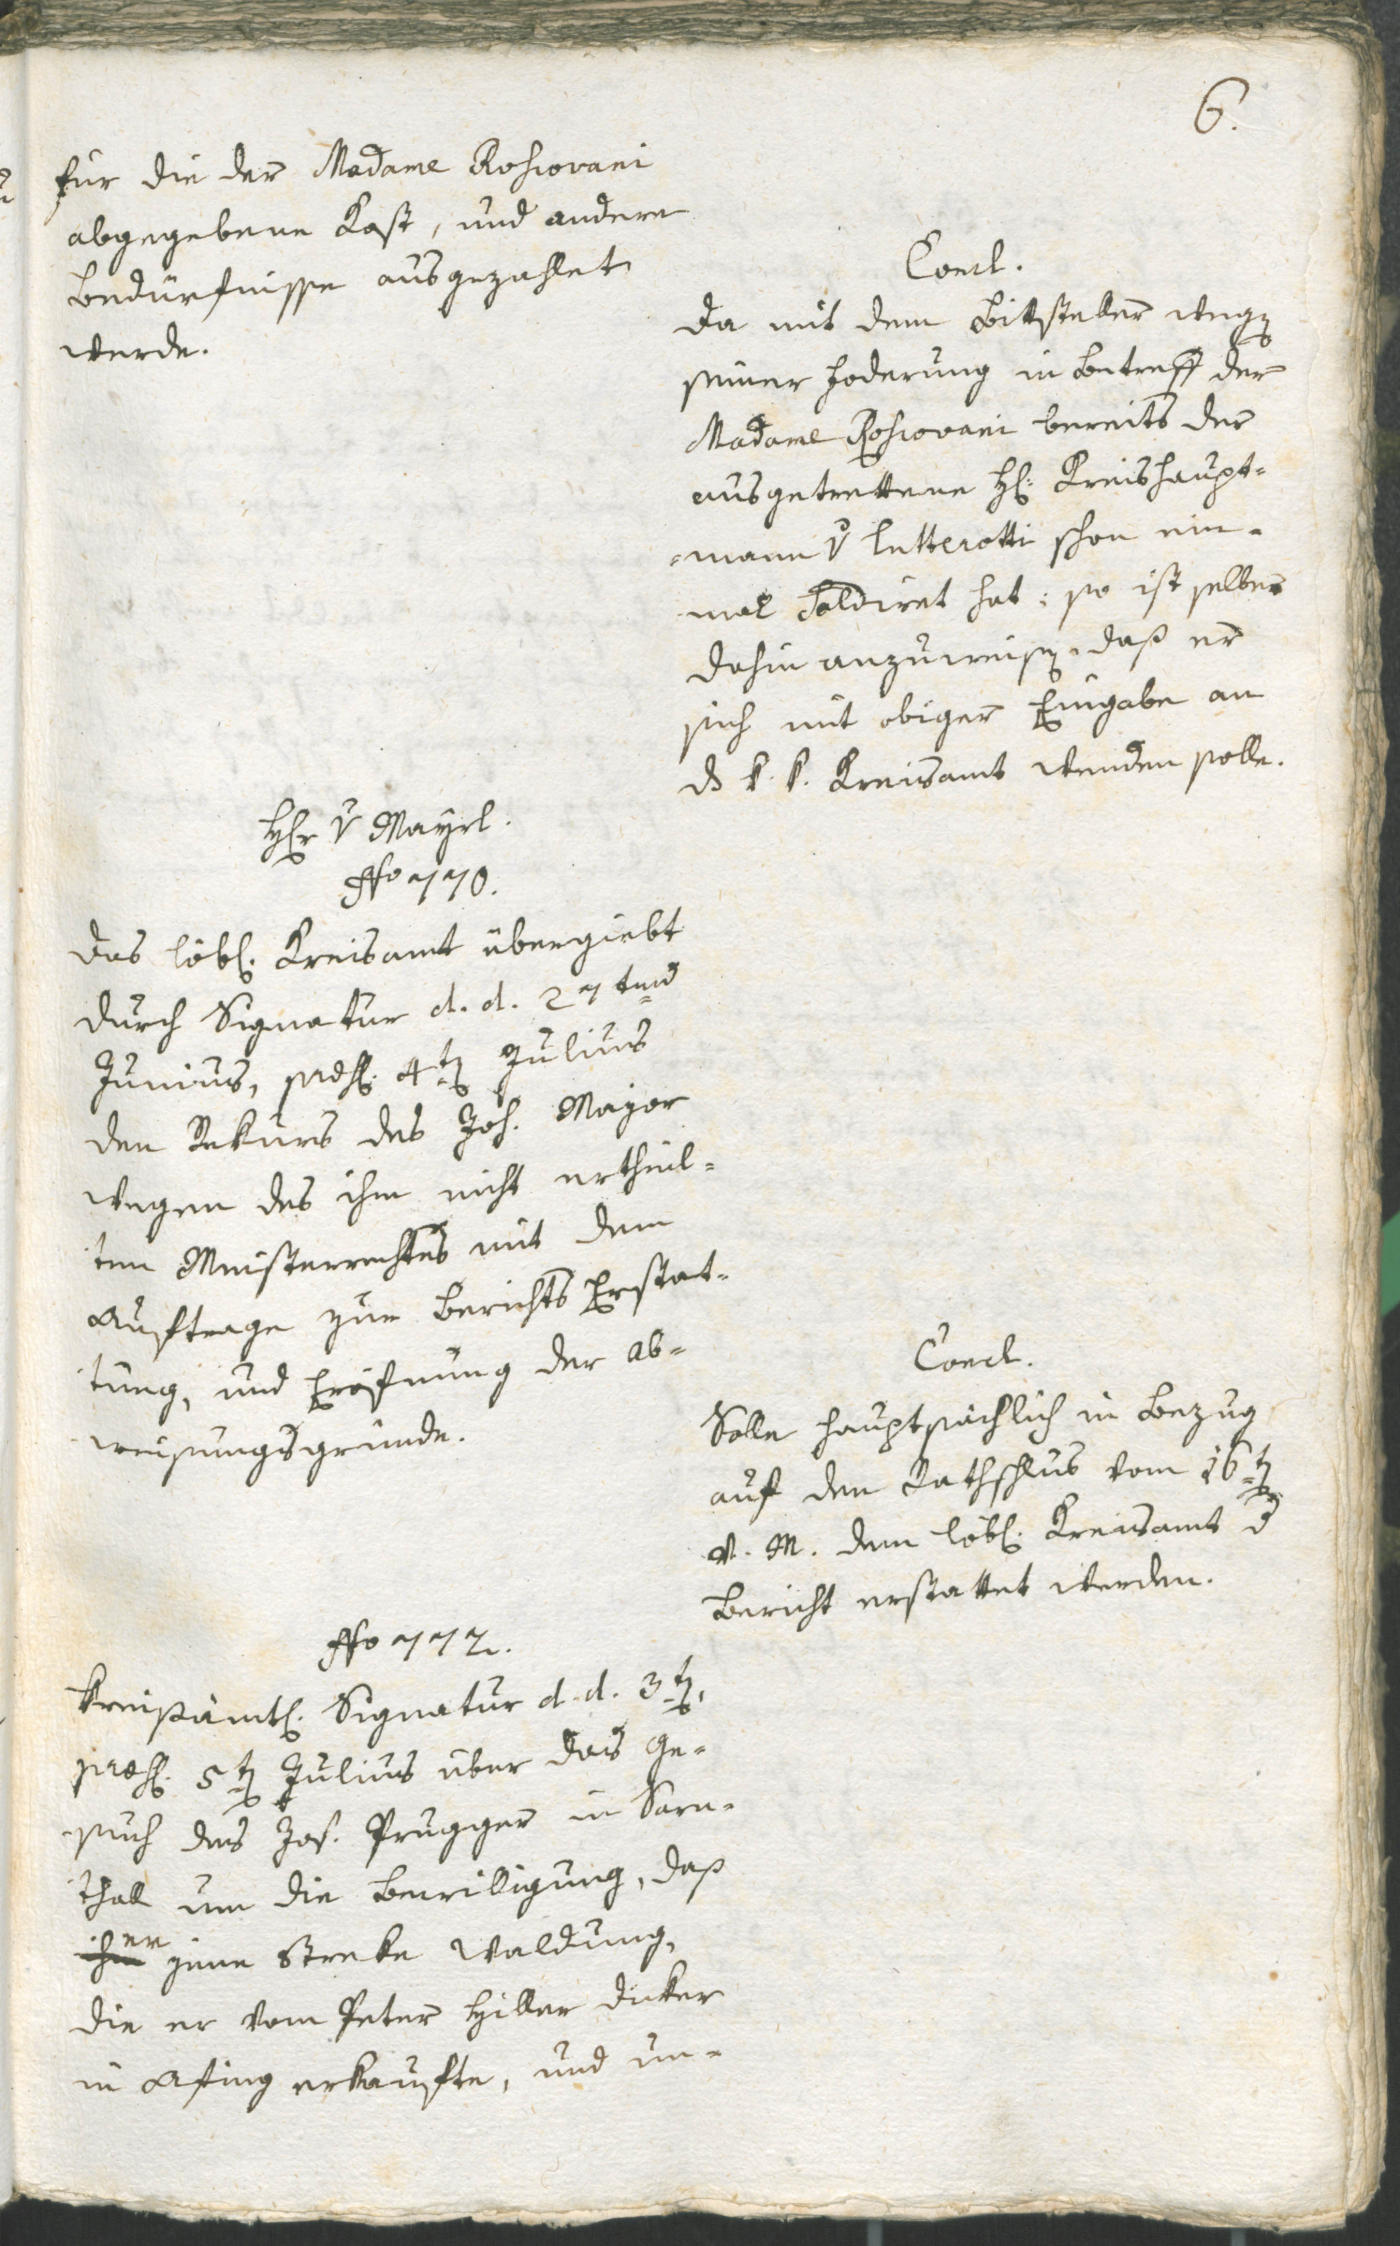 6.
für die der Madame Roschovani
abgegebene Kost, und andere
Bedürfnisse ausgezahlet
werde.
Concl.
Da mit dem Bittsteller wegen
seiner Foderung in Betreff der
Madame Roschovani bereits der
ausgetrettene H: Kreishaupt=
=mann v Lutterotti schon ein=
mal saldiret hat: so ist selber
dahin anzuweisen, daß er
sich mit obiger Eingabe an
ds k. k. Kreisamt wenden solle.
Herr v Mayrl.
No 770.
Das löbl. Kreisamt übergiebt
durch Signatur d. d. 27ten
Junius, 4ten Julius
den Rekurs des Joh. Major
wegen des ihm nicht ertheil=
ten Meisterrechtes mit dem
Auftrage zur Berichts Erstat=
tung, und Eröfnung der Ab=
weisungsgründe.
Concl.
Solle hauptsächlich in Bezug
auf den Rathschlus vom 16ten
v. M. dem löbl. Kreisamt d
Bericht erstattet werden.
No 772.
Kreisämtl. Signatur d. d. 3ten,
5ten Julius über das Ge=
such des Jos. Prugger in Sarn=
thall um die Bewilligung, daß
er jene Streke Waldung,
die er vom Peter Hiller Decker
in Afing erkaufte, und un=